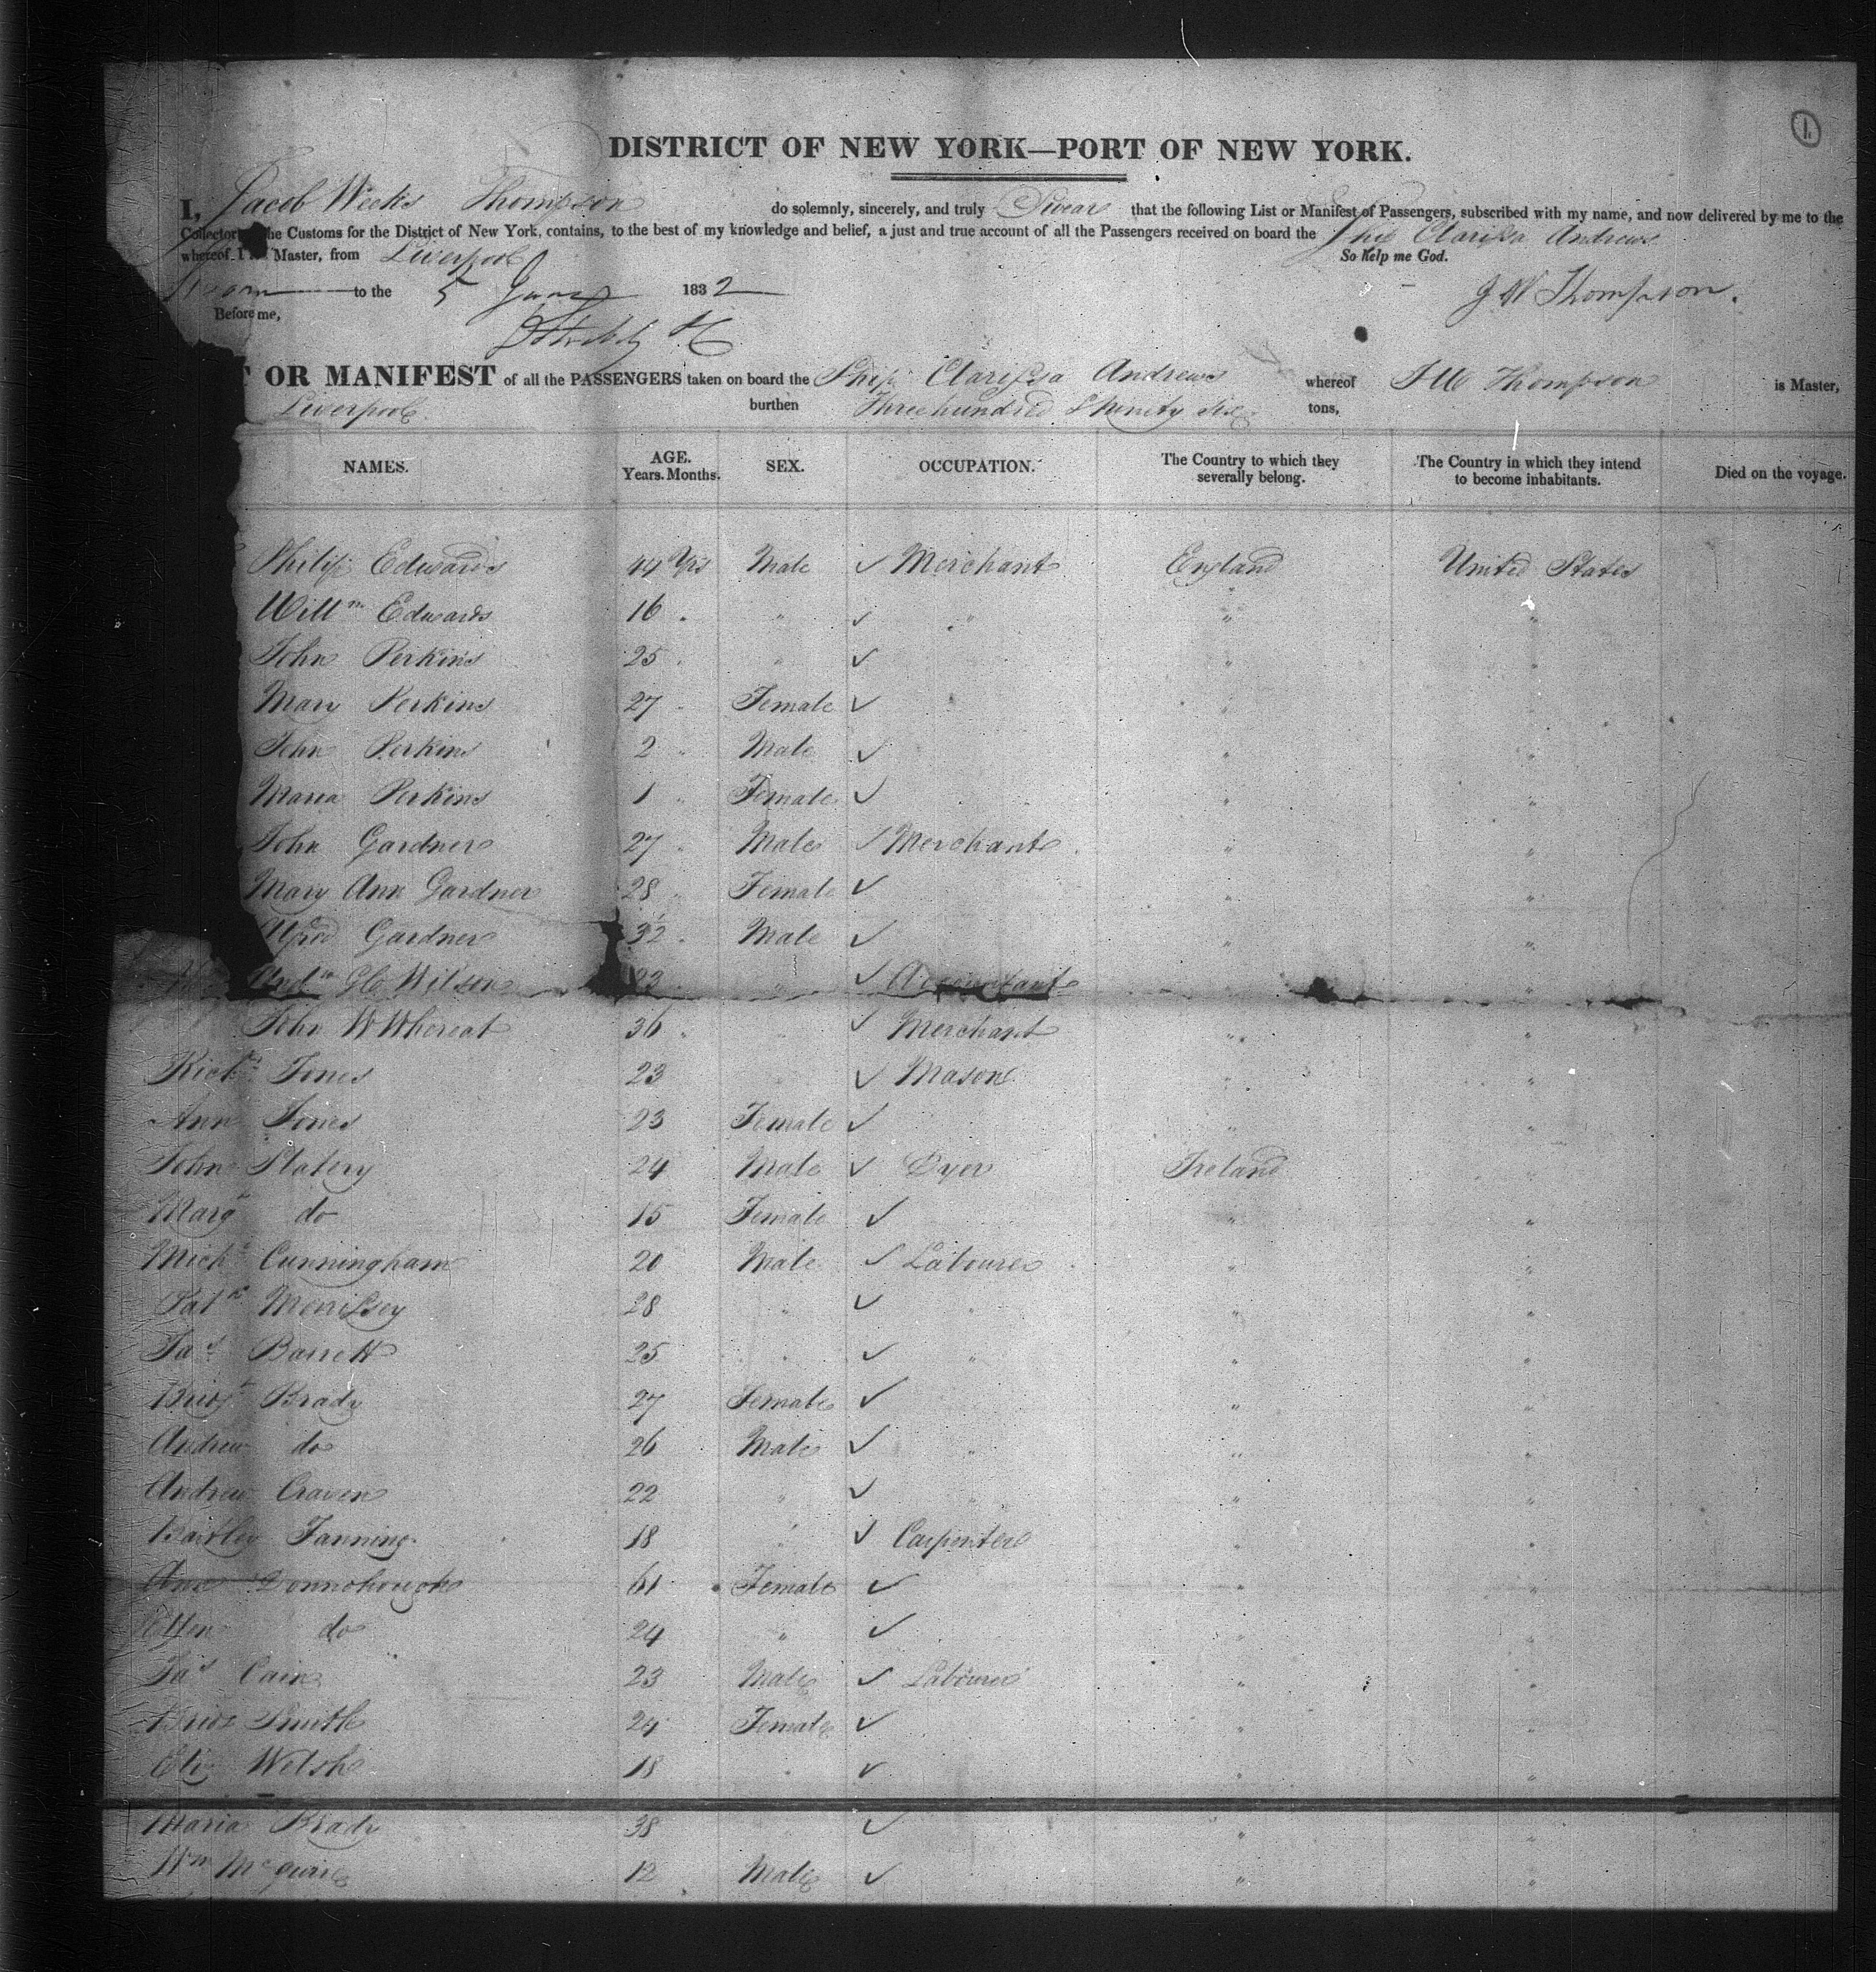 1.
DISTRICT OF NEW YORK—PORT OF NEW YORK.
I, Jacob Weeks Thompson do solemnly, sincerely, and truly Swear that the following List or Manifest of Passengers, subscribed with my name, and now delivered by me to the
Collector the Customs for the District of New York, contains, to the best of my knowledge and belief, a just and true account of all the Passengers received on board the Ship Clarissa Andrews
whereof I Master, from Liverpool So help me God.
Sworn to the 5 June 1832 J W Thompson.
Before me,
OR MANIFEST of all the PASSENGERS taken on board the Ship Clarissa Andrews whereof J W Thompson is Master,
Liverpool burthen Three hundred & ninety six tons,
NAMES. AGE. Years. Months. SEX. OCCUPATION. The Country to which they severally belong. The Country in which they intend to become inhabitants. Died on the voyage.
Philip Edwards 44 Yrs Male ✓ Merchant England United States
Willm Edwards 16 " ✓ " " "
John Perkins 25 " ✓ " "
Mary Perkins 27 Female ✓ " "
John Perkins 2 Male ✓ " "
Maria Perkins 1 Female ✓ " "
John Gardner 27 Male ✓ Merchant " "
Mary Ann Gardner 28 Female ✓ " "
Alfred Gardner 32 Male ✓ " "
Wilson 23 " ✓ Accountant "
John W Whereat 36 " ✓ Merchant " "
Richd Jones 23 ✓ Mason " "
Ann Jones 23 Female ✓ " "
John Slatery 24 Male ✓ Dyer Ireland "
Margt do 15 Female ✓ " "
Michl Cunningham 20 Male ✓ Labourer " "
Patk Morrissey 28 " ✓ " " "
Jas Barrett 25 " ✓ " " "
Bridgt Brady 27 Female ✓ " "
Andrew do 26 Male ✓ " " "
Andrew Craven 22 " ✓ " " "
Bartley Fanning 18 " ✓ Carpenter " "
Ann Donnohough 61 Female ✓ " "
Ellen do 24 " ✓ " "
Jas Cain 23 Male ✓ Labourer " "
Bridt Smith 24 Female ✓ " "
Eliz Welsh 18 " ✓ " "
Maria Brady 38 ✓ " "
Wm McGuire 12 Male ✓ " "